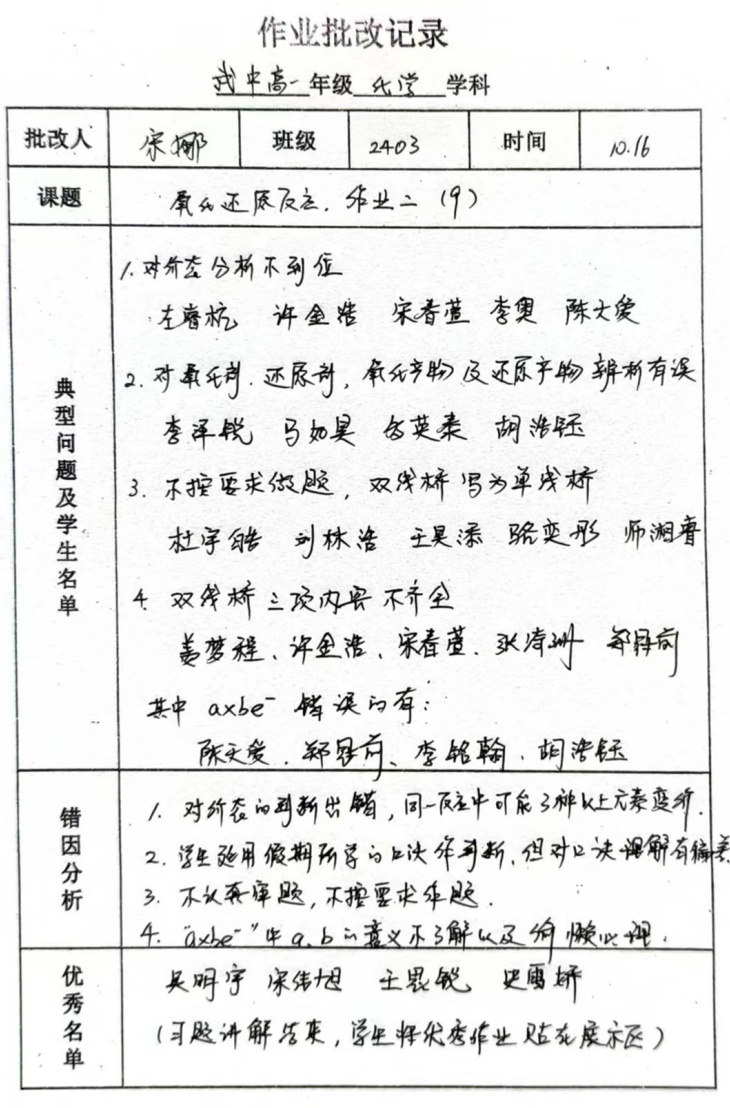 作业批改记录
武中高一年级 化学 学科
批改人 宋娜 班级 2403 时间 10.16
课题 氧化还原反应.作业二(9)
典型问题及学生名单
1.对价态分析不到位
左睿杭 许金浩 宋春萱 李奥 陈天爱
2.对氧化剂.还原剂,氧化产物及还原产物辨析有误
李泽锐 马如昊 英豪 胡浩钰
3.不按要求做题,双线桥写为单线桥
杜宇皓 刘林浩 王昊添 骆奕彤 师湘睿
4.双线桥三项内容不齐全
姜梦程、许金浩、宋春萱.张 郑舜前
其中axbe⁻错误的有:
陈天爱.郑舜前、李铭翰.胡浩钰
错因分析
1.对价态的判断出错,同一反应中可能3种以上元素变价.
2.学生延用假期所学的口诀作判断,但对口诀理解有偏差
3.不认真审题,不按要求作题.
4."axbe⁻"中a.b的意义不了解以及偷懒心理.
优秀名单
吴明宇 宋伟旭 王思锐 史雪妍
(习题讲解结束,学生将优秀作业贴在展示区)